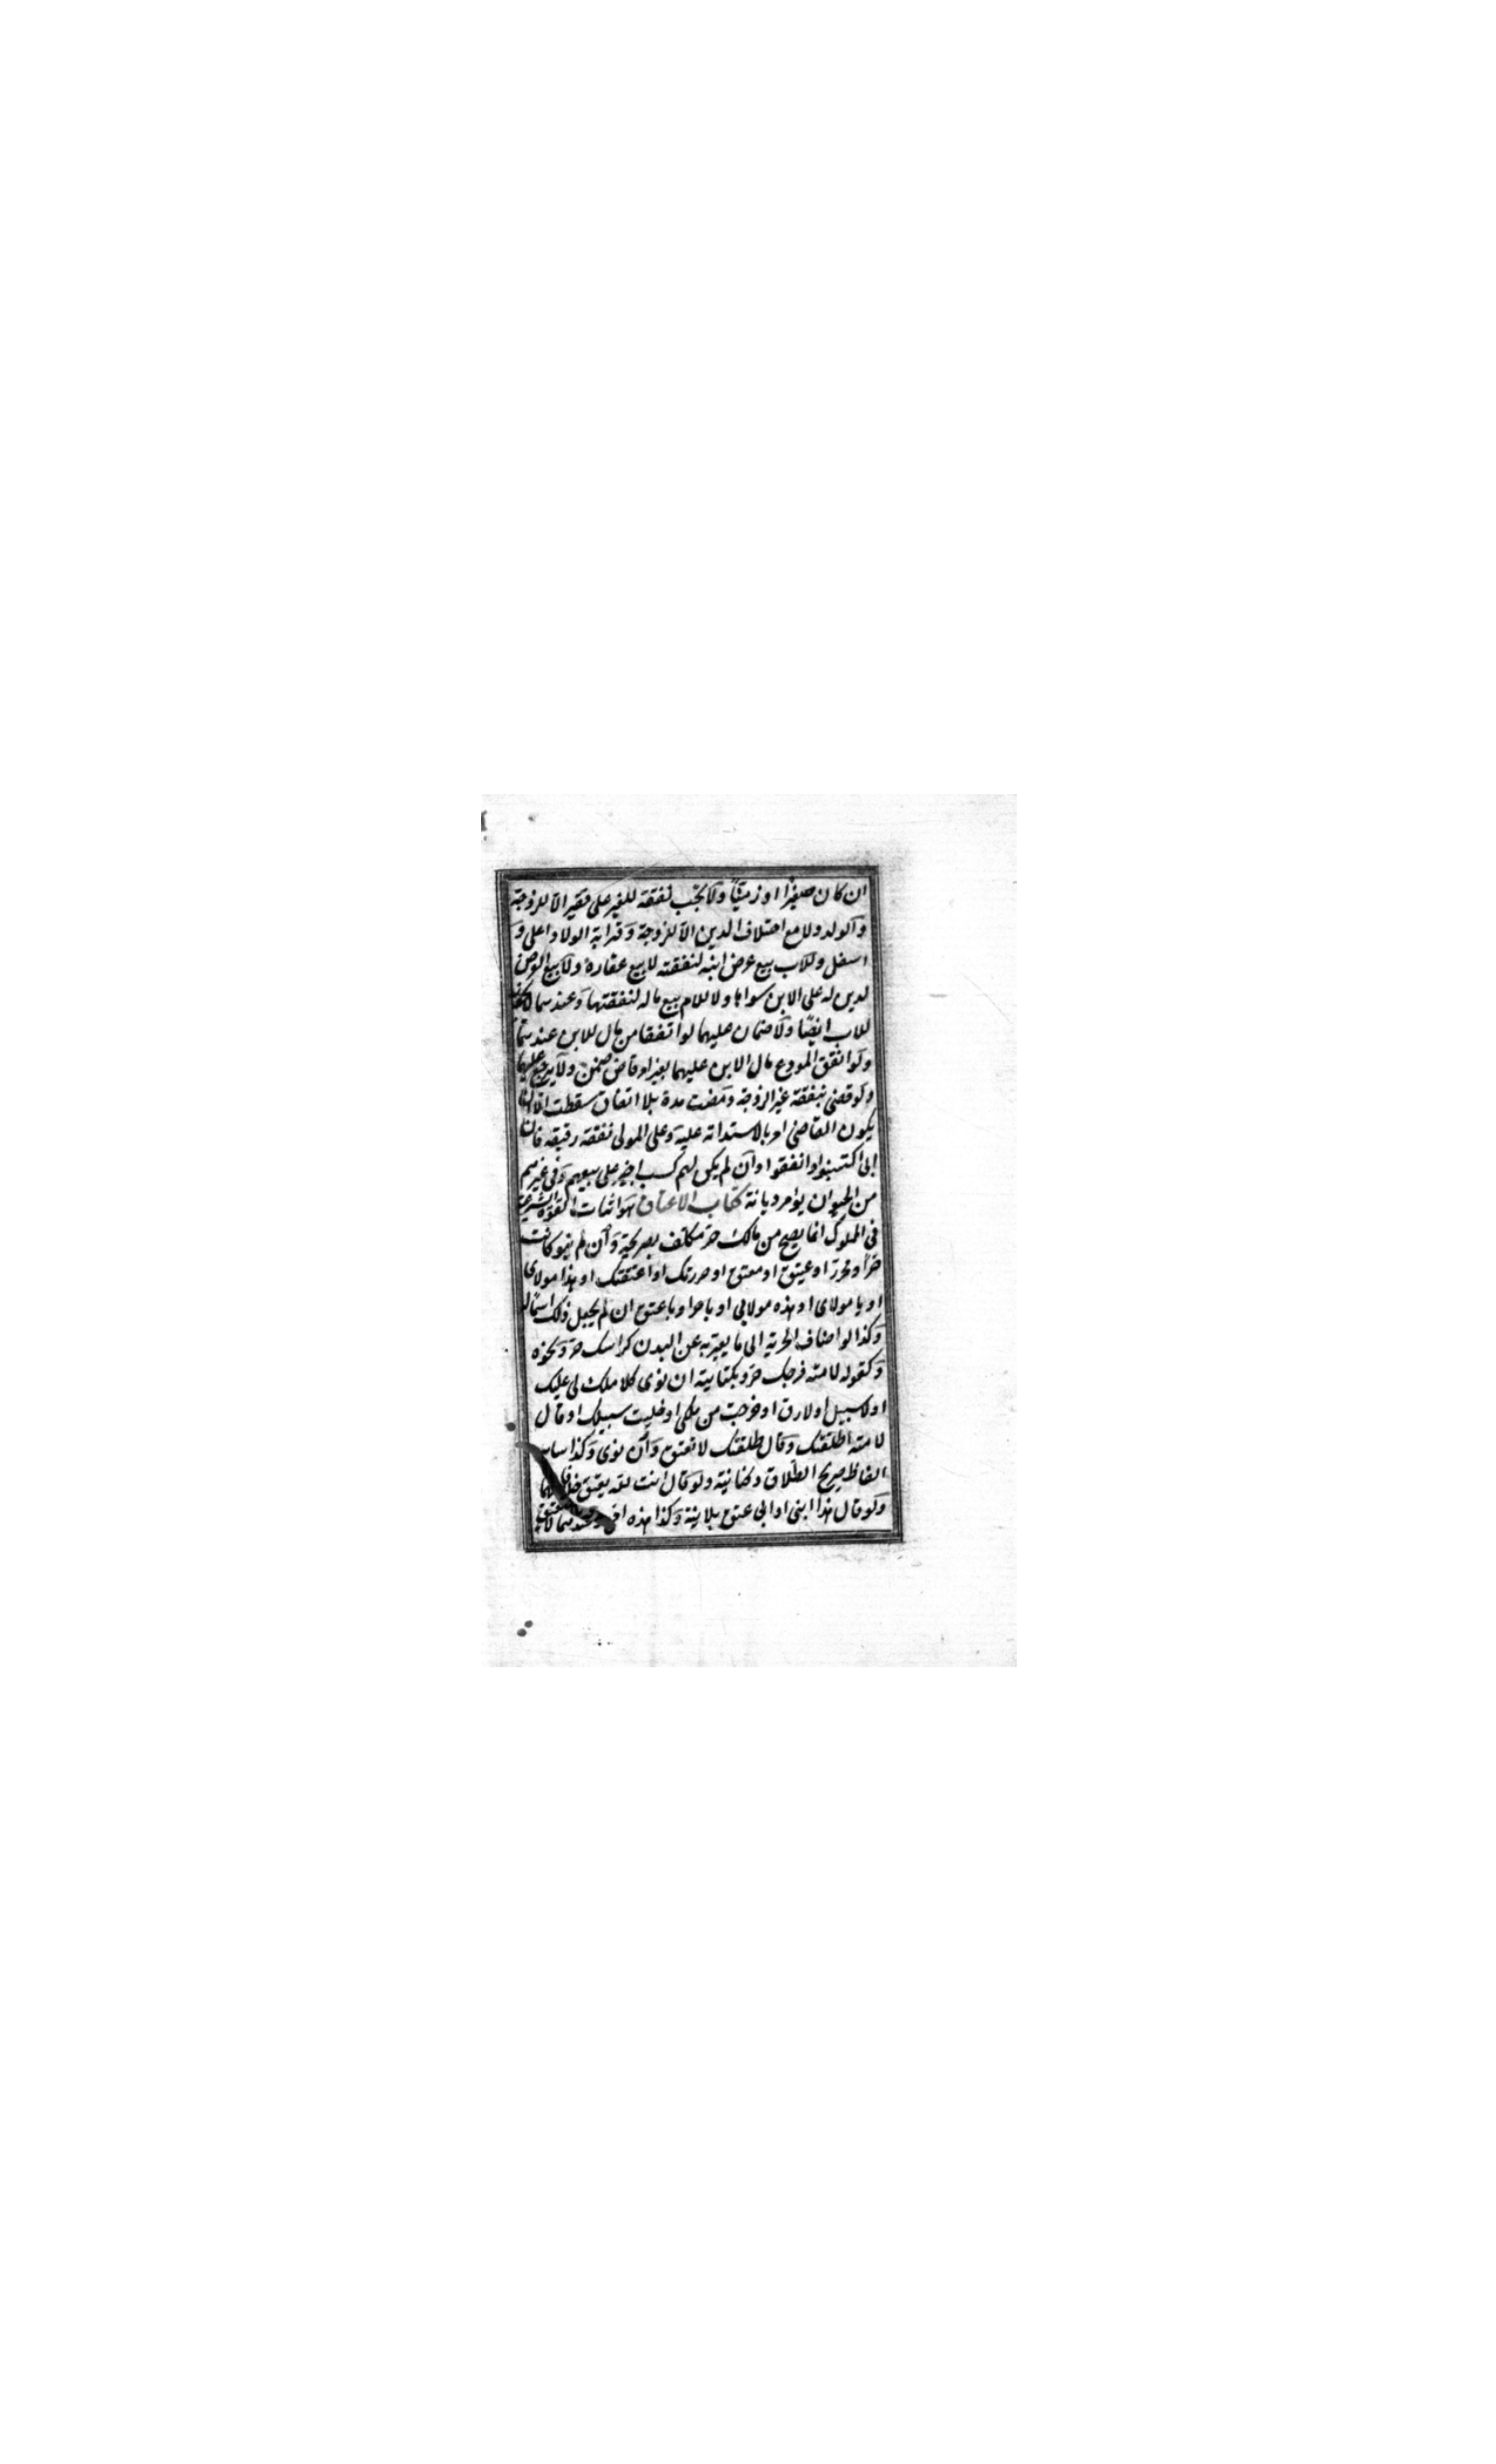 ان كان صغيرا او زمنا ولا تجب نفقة للغير على فقير الا للزوجة
والولد ولا مع اختلاف الدين الا للزوجة وقرابة الولاد اعلى و
اسفل وللاب بيع عرض ابنه لنفقته لا بيع عقاره ولا بيع العرض
لدين له على الابن سواها ولا للام بيع ماله لنفقتها وعندهما لا يجوز
للاب ايضا ولا ضمان عليهما لو انفقا من مال للابن عندهما
ولو انفق المودع مال الابن عليهما بغير امر قاض ضمن ولا يرجع عليهما
ولو قضى بنفقة غير الزوجة ومضت مدة بلا انفاق سقطت الا ان
يكون القاضى امر بالاستدانة عليه وعلى المولى نفقة رقيقه فان
ابى اكتسبوا وانفقوا وان لم يكن لهم كسب اجبر على بيعهم وفى غيرهم
من الحيوان يؤمر ديانة كتاب الاعتاق هو اثبات القوة الشرعية
فى المملوك انما يصح من مالك حر مكلف بصريحه وان لم ينو كانت
حر او محرر او عتيق او معتق او حررتك او اعتقتك او هذا مولاى
او يا مولاى او هذه مولاتى او يا حر او يا عتيق ان لم يجعل ذلك اسما له
وكذا لو اضاف الحرية الى ما يعبر به عن البدن كراسك حر ونحوه
وكقوله لامته فرجك حر وبكنايته ان نوى كلا ملك لى عليك
او لا سبيل او لا رق او خرجت من ملكى او خليت سبيلك او قال
لامته اطلقتك ولو قال طلقتك لا تعتق وان نوى وكذا سائر
الفاظ صريح الطلاق وكنايته ولو قال انت لله يعتق خلافا لهما
ولو قال هذا ابنى او ابى عتق بلا نية وكذا هذه امى وعندهما لا يعتق